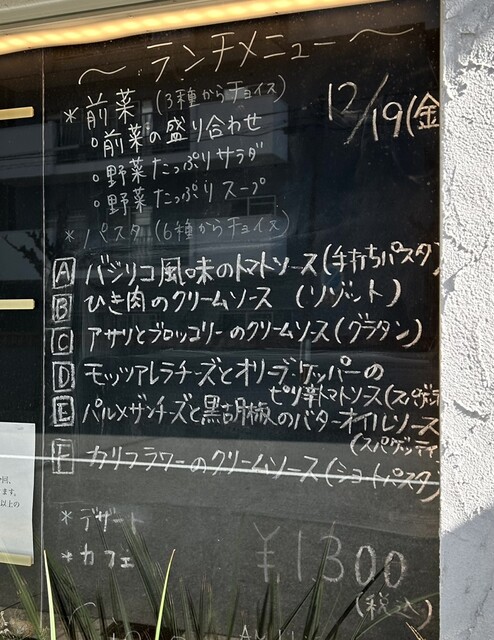 〜ランチメニュー〜
12/19(金
*前菜(3種からチョイス)
○前菜の盛り合わせ
○野菜たっぷりサラダ
○野菜たっぷりスープ
*パスタ(6種からチョイス)
A バジリコ風味のトマトソース(手打ちパスタ)
B ひき肉のクリームソース (リゾット)
C アサリとブロッコリーのクリームソース(グラタン)
D モッツァレラチーズとオリーブ、ケッパーの
ピリ辛トマトソース(スパゲテ
E パルメザンチーズと黒胡椒のバターオイルソース
(スパゲッティ
F カリフラワーのクリームソース(ショートパスタ)
*デザート
*カフェ
¥1300
(税込)
回、
ます。
以上の